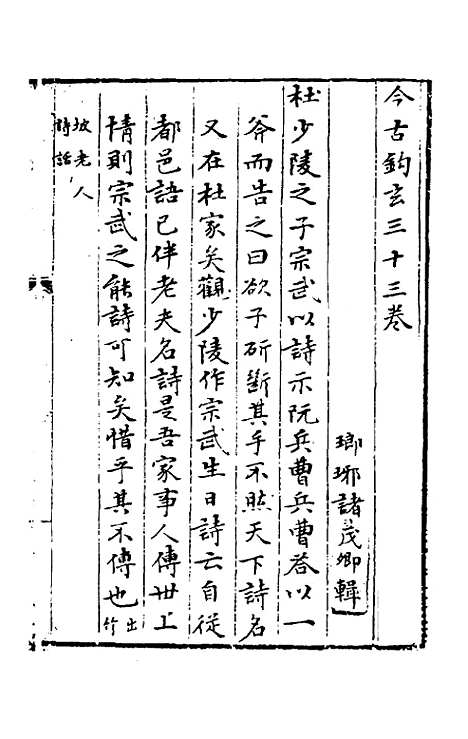 今古鈎玄三十三卷
瑯琊諸茂卿輯
杜少陵之子宗武以詩示阮兵曹兵曹答以一
斧而告之曰欲子斫斷其手不然天下詩名
又在杜家矣觀少陵作宗武生日詩云自從
都邑語已伴老夫名詩是吾家事人傳世上
情則宗武之能詩可知矣惜乎其不傳也出竹
坡老人
詩話